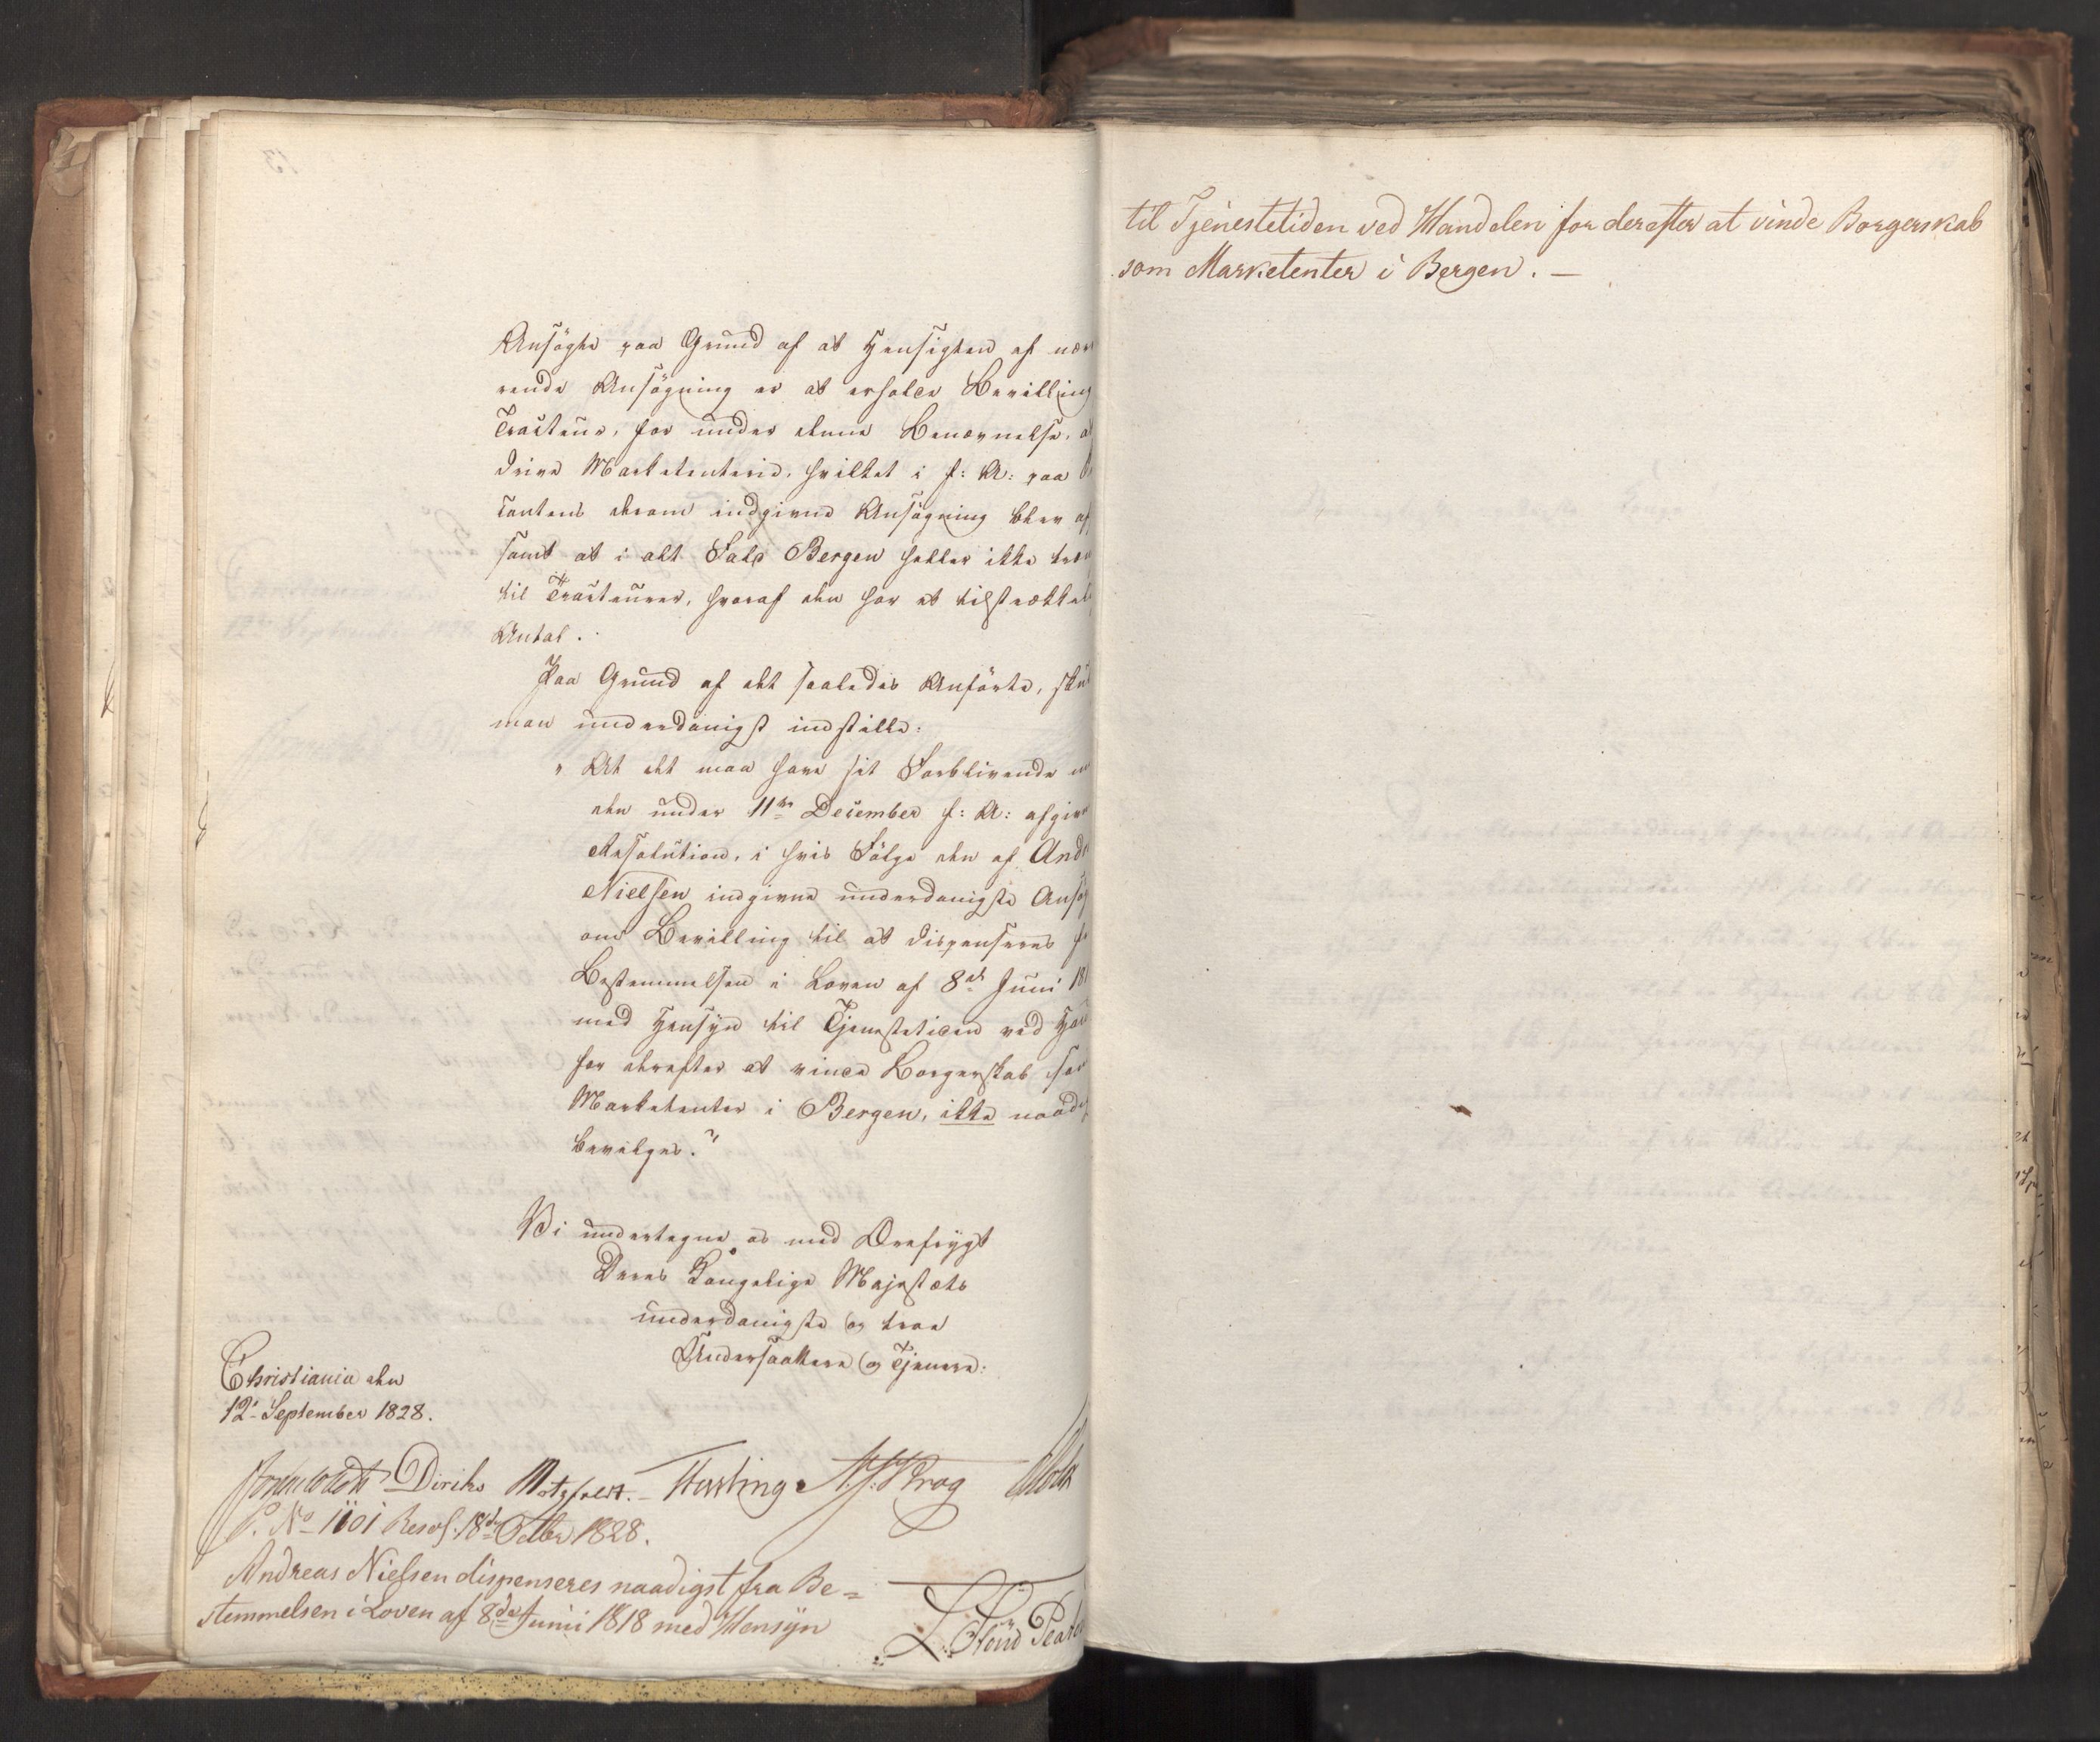 Ansögte paa Grund af at Hensigten af nær
rende Ansögning er at erholde Bevilling
Tracteur, for under denne Benævnelse, a
drive Marketenterie, hvilket i f: A: paa
cantens derom indgivne Ansögning blev af
samt at i alt Fald Bergen heller ikke træn
til Tracteurer, hvoraf den har et tilstrækkel
Antal.
Paa Grund af det saaledes Anförte, skul
man underdanigst indstille:
"At det maa have sit Forblivende
den under 11te December f: A: afgivn
Resolution, i hvis Fölge den af Andr
Nielsen indgivne underdanigste Ansög
om Bevilling til at dispenseres f
Bestemmelsen i Loven af 8de Juni 181
med Hensyn til Tjenestetiden ved Han
for derefter at vinde Borgerskab som
Marketenter i Bergen, ikke naadig
bevilges."
Vi undertegne os med Ærefrygt
Deres Kongelige Majestæts
underdanigste og troe
Undersaattere og Tjenere.
Christiania den
12 September 1828.
Diriks Motzfeldt. Krog
P. No 1101 Resol: 18de Octbr 1828.
Andreas Nielsen dispenseres naadigst fra Be=
stemmelsen i Loven af 8de Junii 1818 med Hensyn
til Tjenestetiden ved Handelen for derefter at vinde Borgerskab
som Marketenter i Bergen. —